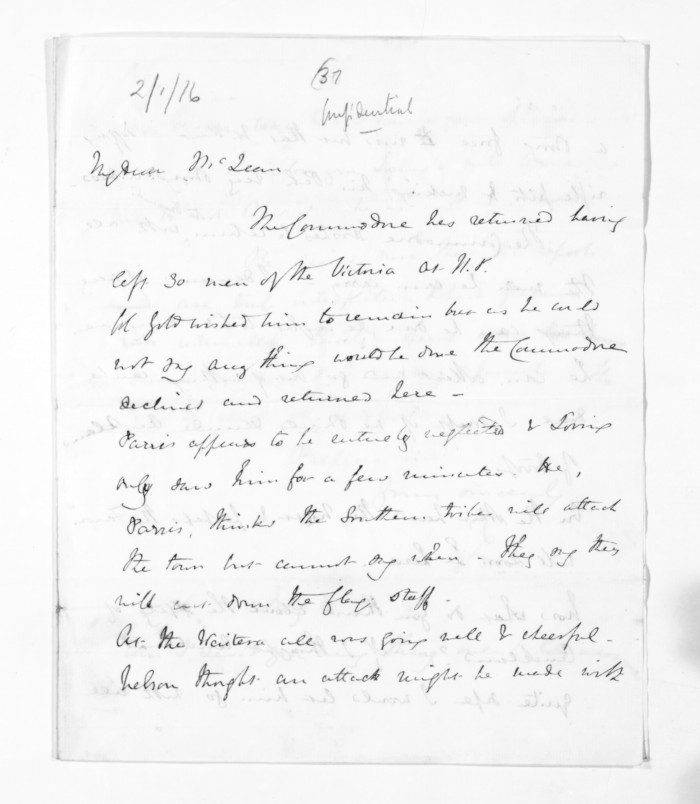 2/1/76
37
Confidential
My dear McLean
The Commodore has returned having
left 30 men of the Victoria at N.P.
Col Gold wished him to remain but as he could
not say any thing would be done the Commodore
declined and returned here -
Parris appears to be entirely neglected &
only saw him for a few minutes. He,
Parris, thinks the Southern tribes will attack
the town but cannot say when - They say they
will cut down the flag staff.
At the Waitera all was going well & cheerful -
Nelson thought an attack might be made with